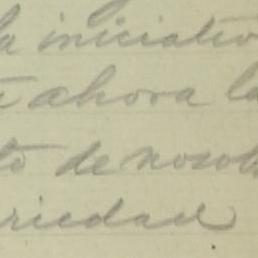 la iniciativ
ahora la
to de nosot
riedad